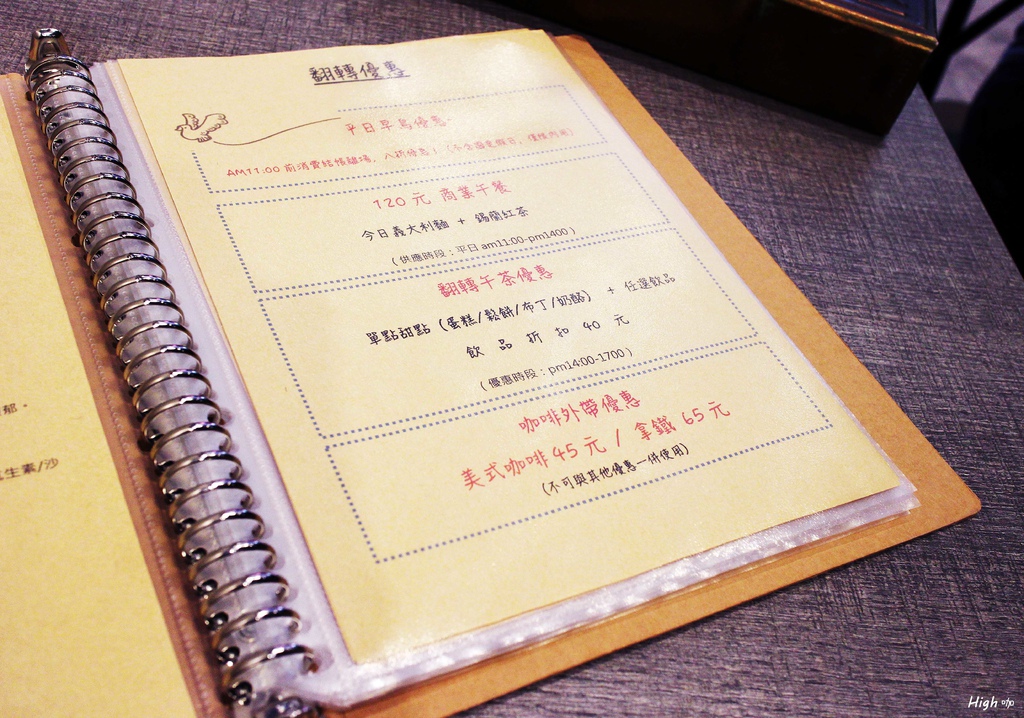 郁。
生素/沙
翻轉優惠
平日早鳥優惠
AM11:00 前消費結帳離場，八折優惠！(不含國定假日，僅限內用)
120 元 商業午餐
今日義大利麵 + 錫蘭紅茶
(供應時段：平日 am11:00-pm1400)
翻轉午茶優惠
單點甜點 (蛋糕/鬆餅/布丁/奶酪) + 任選飲品
飲 品 折 扣 40 元
(優惠時段：pm14:00-1700)
咖啡外帶優惠
美式咖啡 45 元 / 拿鐵 65 元
(不可與其他優惠一併使用)
High 咖